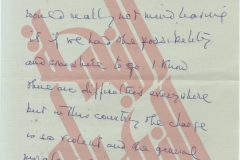 would really not mind leaving
it if we had the possibility
and somewhere to go. I know
there are difficulties everywhere
but in this country the change
is so violent and the general